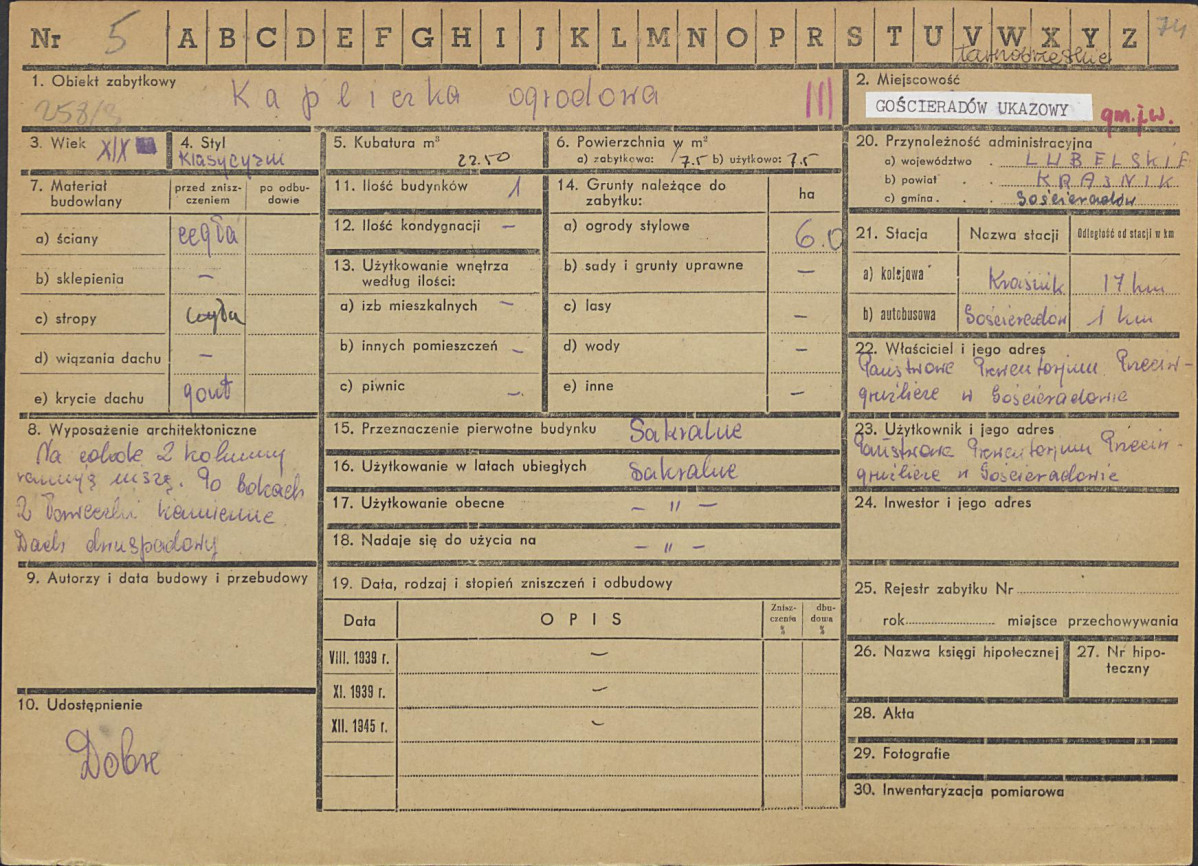 Nr 5 A B C D E F G H I J K L M N O P R S T U V W X Y Z 74
tarnobrzeskie
1. Obiekt zabytkowy
Kapliczka ogrodowa III
258/
2. Miejscowość
GOŚCIERADÓW UKAZOWY gm.j.w.
3. Wiek XIX
4. Styl
Klasycyzm
5. Kubatura m³
22.50
6. Powierzchnia w m²
a) zabytkowa: 7.5 b) użytkowo: 7.5
7. Materiał budowlany
przed zniszczeniem
po odbudowie
a) ściany cegła
b) sklepienia –
c) stropy cegła
d) wiązania dachu –
e) krycie dachu gont
8. Wyposażenie architektoniczne
Na cokole 2 kolumny
ramują niszę. Po bokach
2 kamienne
Dach dwuspadowy
9. Autorzy i data budowy i przebudowy
10. Udostępnienie
Dobre
11. Ilość budynków 1
12. Ilość kondygnacji –
13. Użytkowanie wnętrza
według ilości:
a) izb mieszkalnych –
b) innych pomieszczeń –
c) piwnic –
14. Grunty należące do
zabytku:
ha
a) ogrody stylowe 6.0
b) sady i grunty uprawne –
c) lasy –
d) wody –
e) inne –
15. Przeznaczenie pierwotne budynku Sakralne
16. Użytkowanie w latach ubiegłych Sakralne
17. Użytkowanie obecne – " –
18. Nadaje się do użycia na – " –
19. Data, rodzaj i stopień zniszczeń i odbudowy
Data
OPIS
Zniszczenia %
dbudowa %
VIII. 1939 r. –
XI. 1939 r. –
XII. 1945 r. –
20. Przynoleżność administracyjna
a) województwo . LUBELSKIE
b) powiat . . KRAŚNIK
c) gmina . . Gościeradów
21. Stacja
Nazwa stacji
Odległość od stacji w km
a) kolejowa Kraśnik 17 km
b) autobusowa Gościeradów 1 km
22. Właściciel i jego adres
Państwowe Prewentorjum Przeciw-
gruźlicze w Gościeradowie
23. Użytkownik i jego adres
Państwowe Prewentorjum Przeciw-
gruźlicze w Gościeradowie
24. Inwestor i jego adres
25. Rejestr zabytku Nr
rok miejsce przechowywania
26. Nazwa księgi hipotecznej
27. Nr hipo-
teczny
28. Akta
29. Fotografie
30. Inwentaryzacja pomiarowa